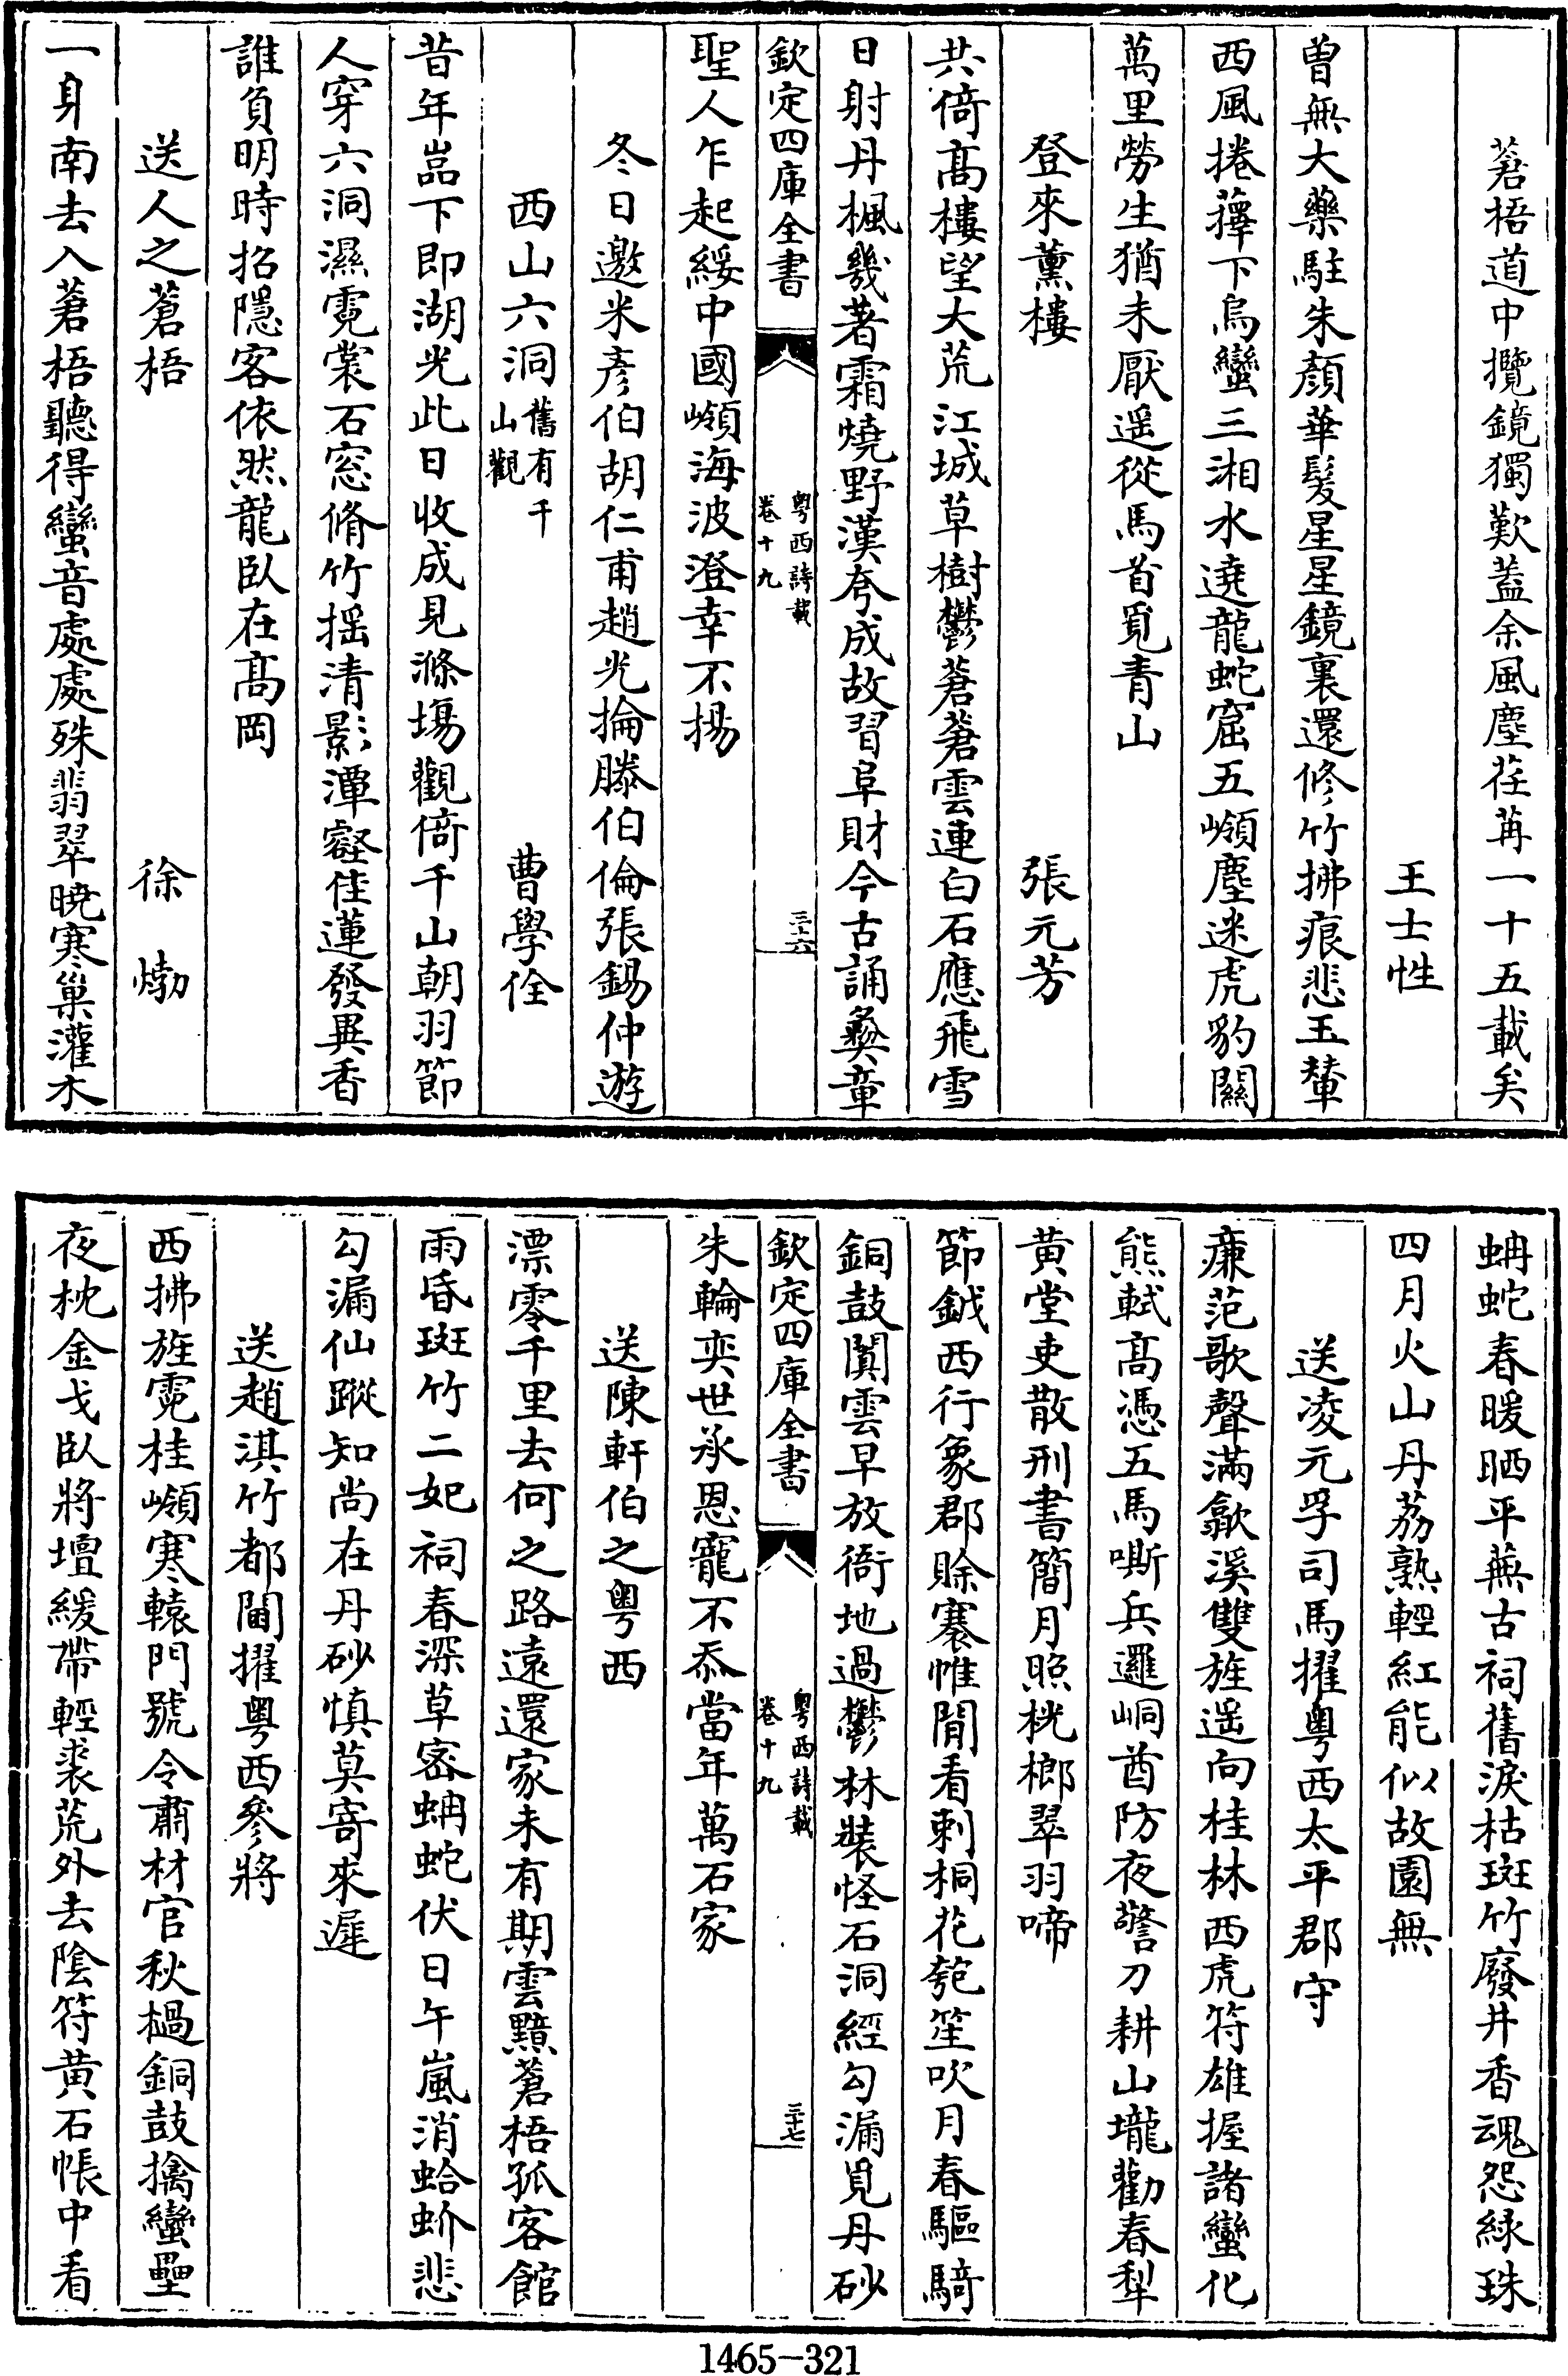 蒼梧道中攬鏡獨歎蓋余風塵荏苒一十五載矣
王士性
曽無大藥駐朱顔華髮星星鏡裏還修竹拂痕悲玉輦
西風捲蘀下烏蠻三湘水遶龍蛇窟五嶺塵迷虎豹關
萬里勞生猶未厭遥從馬首覓青山
登來薰樓 張元芳
共倚髙樓望大荒江城草樹鬱蒼蒼雲連白石應飛雪
日射丹楓幾著霜燒野漢夸成故習阜財今古誦彜章
欽定四庫全書 粤西詩載 卷十九 三十六
聖人乍起綏中國嶺海波澄幸不揚
冬日邀米彦伯胡仁甫趙光掄滕伯倫張錫仲遊
西山六洞舊有千山觀 曹學佺
昔年嵓下即湖光此日收成見滌塲觀倚千山朝羽節
人穿六洞濕霓裳石窓脩竹揺清影潭壑佳蓮發異香
誰負明時招隱客依然龍臥在髙岡
送人之蒼梧 徐𤊹
一身南去入蒼梧聽得蠻音處處殊翡翠曉寒巢灌木
蚺蛇春暖晒平蕪古祠舊淚枯斑竹廢井香魂怨緑珠
四月火山丹荔熟輕紅能似故園無
送凌元孚司馬擢粤西太平郡守
亷范歌聲滿歙溪雙旌遥向桂林西虎符雄握諸蠻化
熊軾髙憑五馬嘶兵邏峒酋防夜警刀耕山壠勸春犁
黄堂吏散刑書簡月照桄榔翠羽啼
節鉞西行象郡賒褰帷閒看刺桐花匏笙吹月春驅騎
銅鼓闐雲早放衙地過鬱林裝怪石洞經勾漏覓丹砂
欽定四庫全書 粤西詩載 卷十九 三十七
朱輪奕世承恩寵不忝當年萬石家
送陳軒伯之粤西
漂零千里去何之路遠還家未有期雲黯蒼梧孤客館
雨昏斑竹二妃祠春深草宻蚺蛇伏日午嵐消蛤蚧悲
勾漏仙蹤知尚在丹砂慎莫寄來遲
送趙淇竹都閫擢粤西參將
西拂旌霓桂嶺寒轅門號令肅材官秋檛銅鼓擒蠻壘
夜枕金戈臥將壇緩帶輕裘荒外去陰符黄石帳中看
1465-321